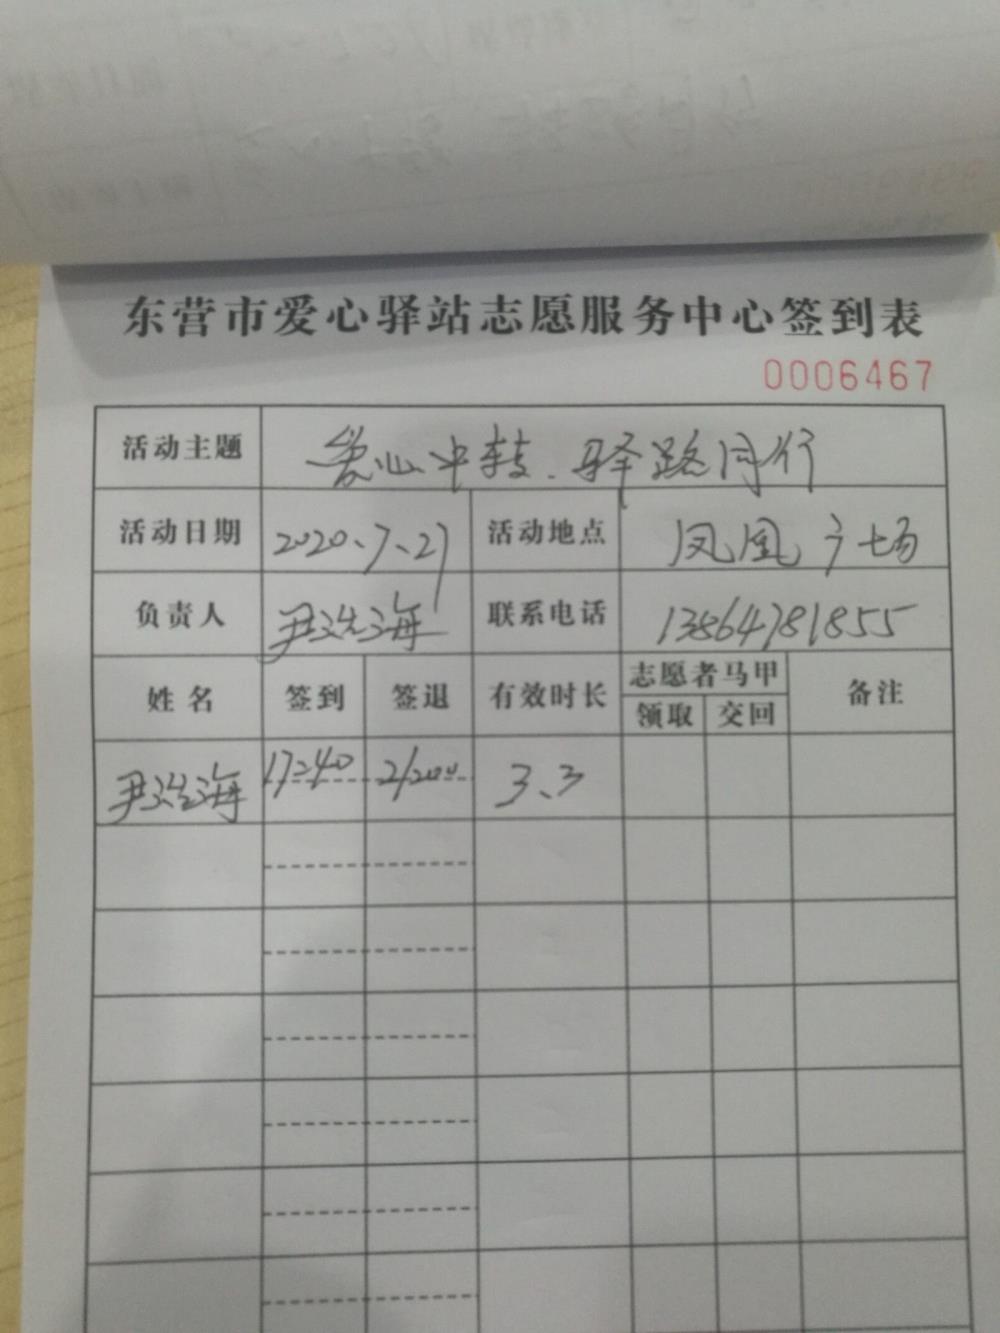 东营市爱心驿站志愿服务中心签到表
0006467
活动主题 爱心中转、驿路同行
活动日期 2020、7、27 活动地点 凤凰广场
负责人 尹浩海 联系电话 13864781855
姓名 签到 签退 有效时长 志愿者马甲 备注
领取 交回
尹浩海 17:40 21:00 3、3